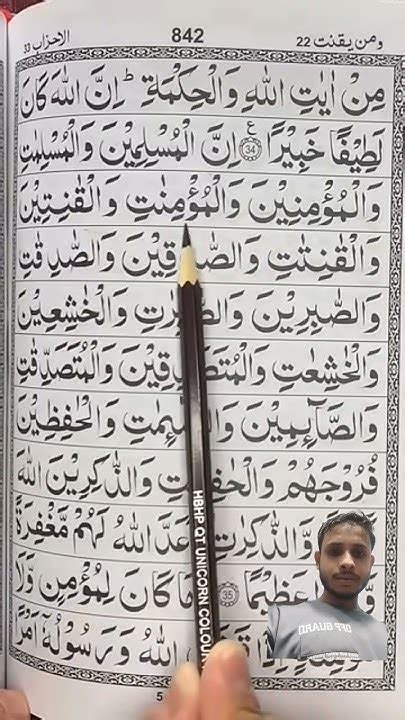 الاحزاب 33 842 ومن يقنت 22
مِنْ اٰيٰتِ اللّٰهِ وَالْحِكْمَةِ ؕ اِنَّ اللّٰهَ كَانَ
لَطِيْفًا خَبِيْرًا ع 34 اِنَّ الْمُسْلِمِيْنَ وَالْمُسْلِمٰتِ
وَالْمُؤْمِنِيْنَ وَالْمُؤْمِنٰتِ وَالْقٰنِتِيْنَ
وَالْقٰنِتٰتِ وَالصّٰدِقِيْنَ وَالصّٰدِقٰتِ
وَالصّٰبِرِيْنَ وَالصّٰبِرٰتِ وَالْخٰشِعِيْنَ
وَالْخٰشِعٰتِ وَالْمُتَصَدِّقِيْنَ وَالْمُتَصَدِّقٰتِ
وَالصَّآئِمِيْنَ وَالصّٰٓئِمٰتِ وَالْحٰفِظِيْنَ
فُرُوْجَهُمْ وَالْحٰفِظٰتِ وَالذّٰكِرِيْنَ اللّٰهَ
وَّالذّٰكِرٰتِ اَعَدَّ اللّٰهُ لَهُمْ مَّغْفِرَةً
عَظِيْمًا 35 وَمَا كَانَ لِمُؤْمِنٍ وَّلَا
اِذَا قَضَى اللّٰهُ وَرَسُوْلُهٗٓ اَمْرًا
HBHP QT UNICORN COLOUR
OFF GUARD